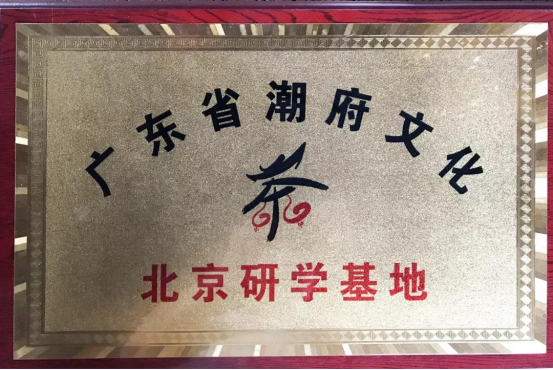 广东省潮府文化
茶
北京研学基地